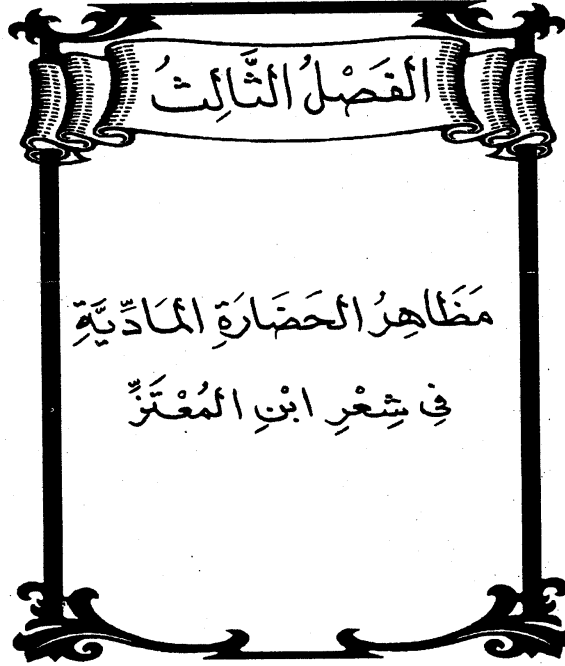 الفَصْلُ الثَّالِثُ
مَظَاهِرُ الحَضَارَةِ المَادِّيَّةِ
فِي شِعْرِ ابْنِ المُعْتَزِّ